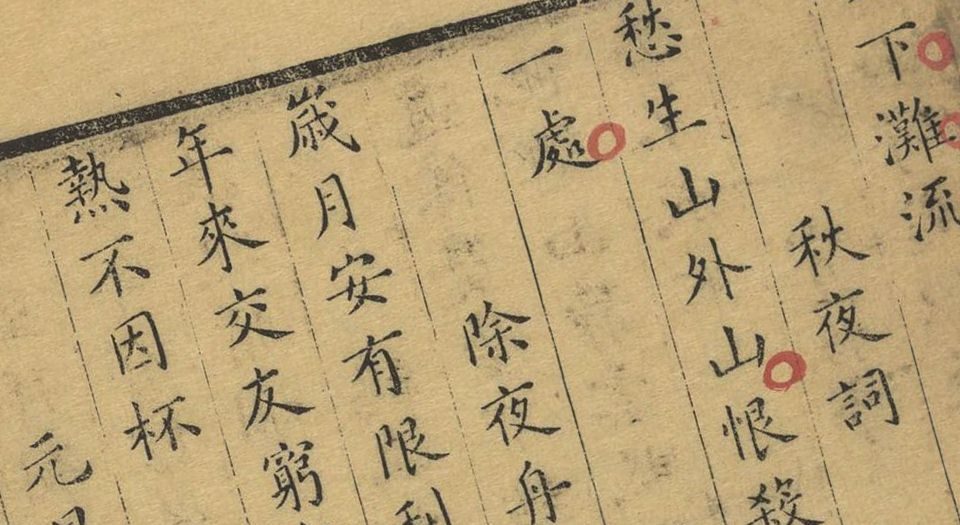 下灘流
秋夜詞
愁生山外山恨殺
一處
除夜舟
歲月安有限利
年來交友窮
熱不因杯
元